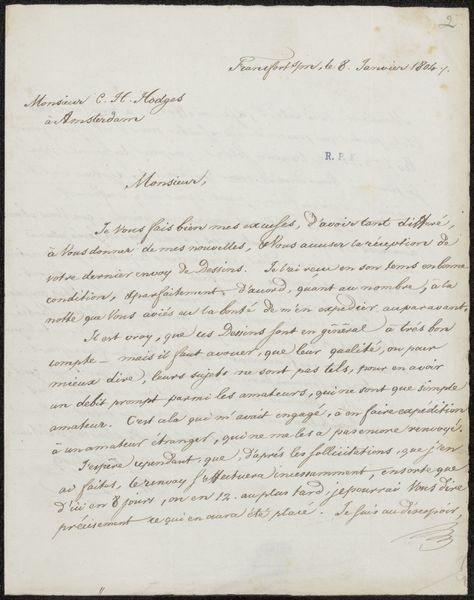 2
Francfort s/m, le 8. Janvier 1804 /.
Monsieur C. H. Hodges
à Amsterdam
R. P. K.
Monsieur,
Je Vous fais bien mes excuses, d'avoir tant differé,
à Vous donner de mes nouvelles, & Vous accuser la réception de
votre dernier envoy de Dessins. Je l'ai reçu en son tems en bonne
condition, & parfaitement d'acord, quant au nombre, à la
notte que Vous aviés eu la bonté de m'en expedier auparavant.
Il est vray, que ces Dessins sont en général à très bon
compte – mais il faut avouer, que leur qualité, ou pour
mieux dire, leurs sujets ne sont pas tels, pour en avoir
un debit prompt parmi les amateurs, qui ne sont que simple
amateur. C'est cela qui m'avait engagé, à en faire expédition
à un amateur étranger, qui ne me les a pas encore renvoyé.
J'espère cependant, que, d'après les sollicitations, que j'en
ai faites, le renvoy s'effectuera incessamment, ensorte que
d'ici en 8 jours, ou en 12. au plus tard, je pourrai Vous dire
précisement ce qui en aura été placé. Je suis au désespoir